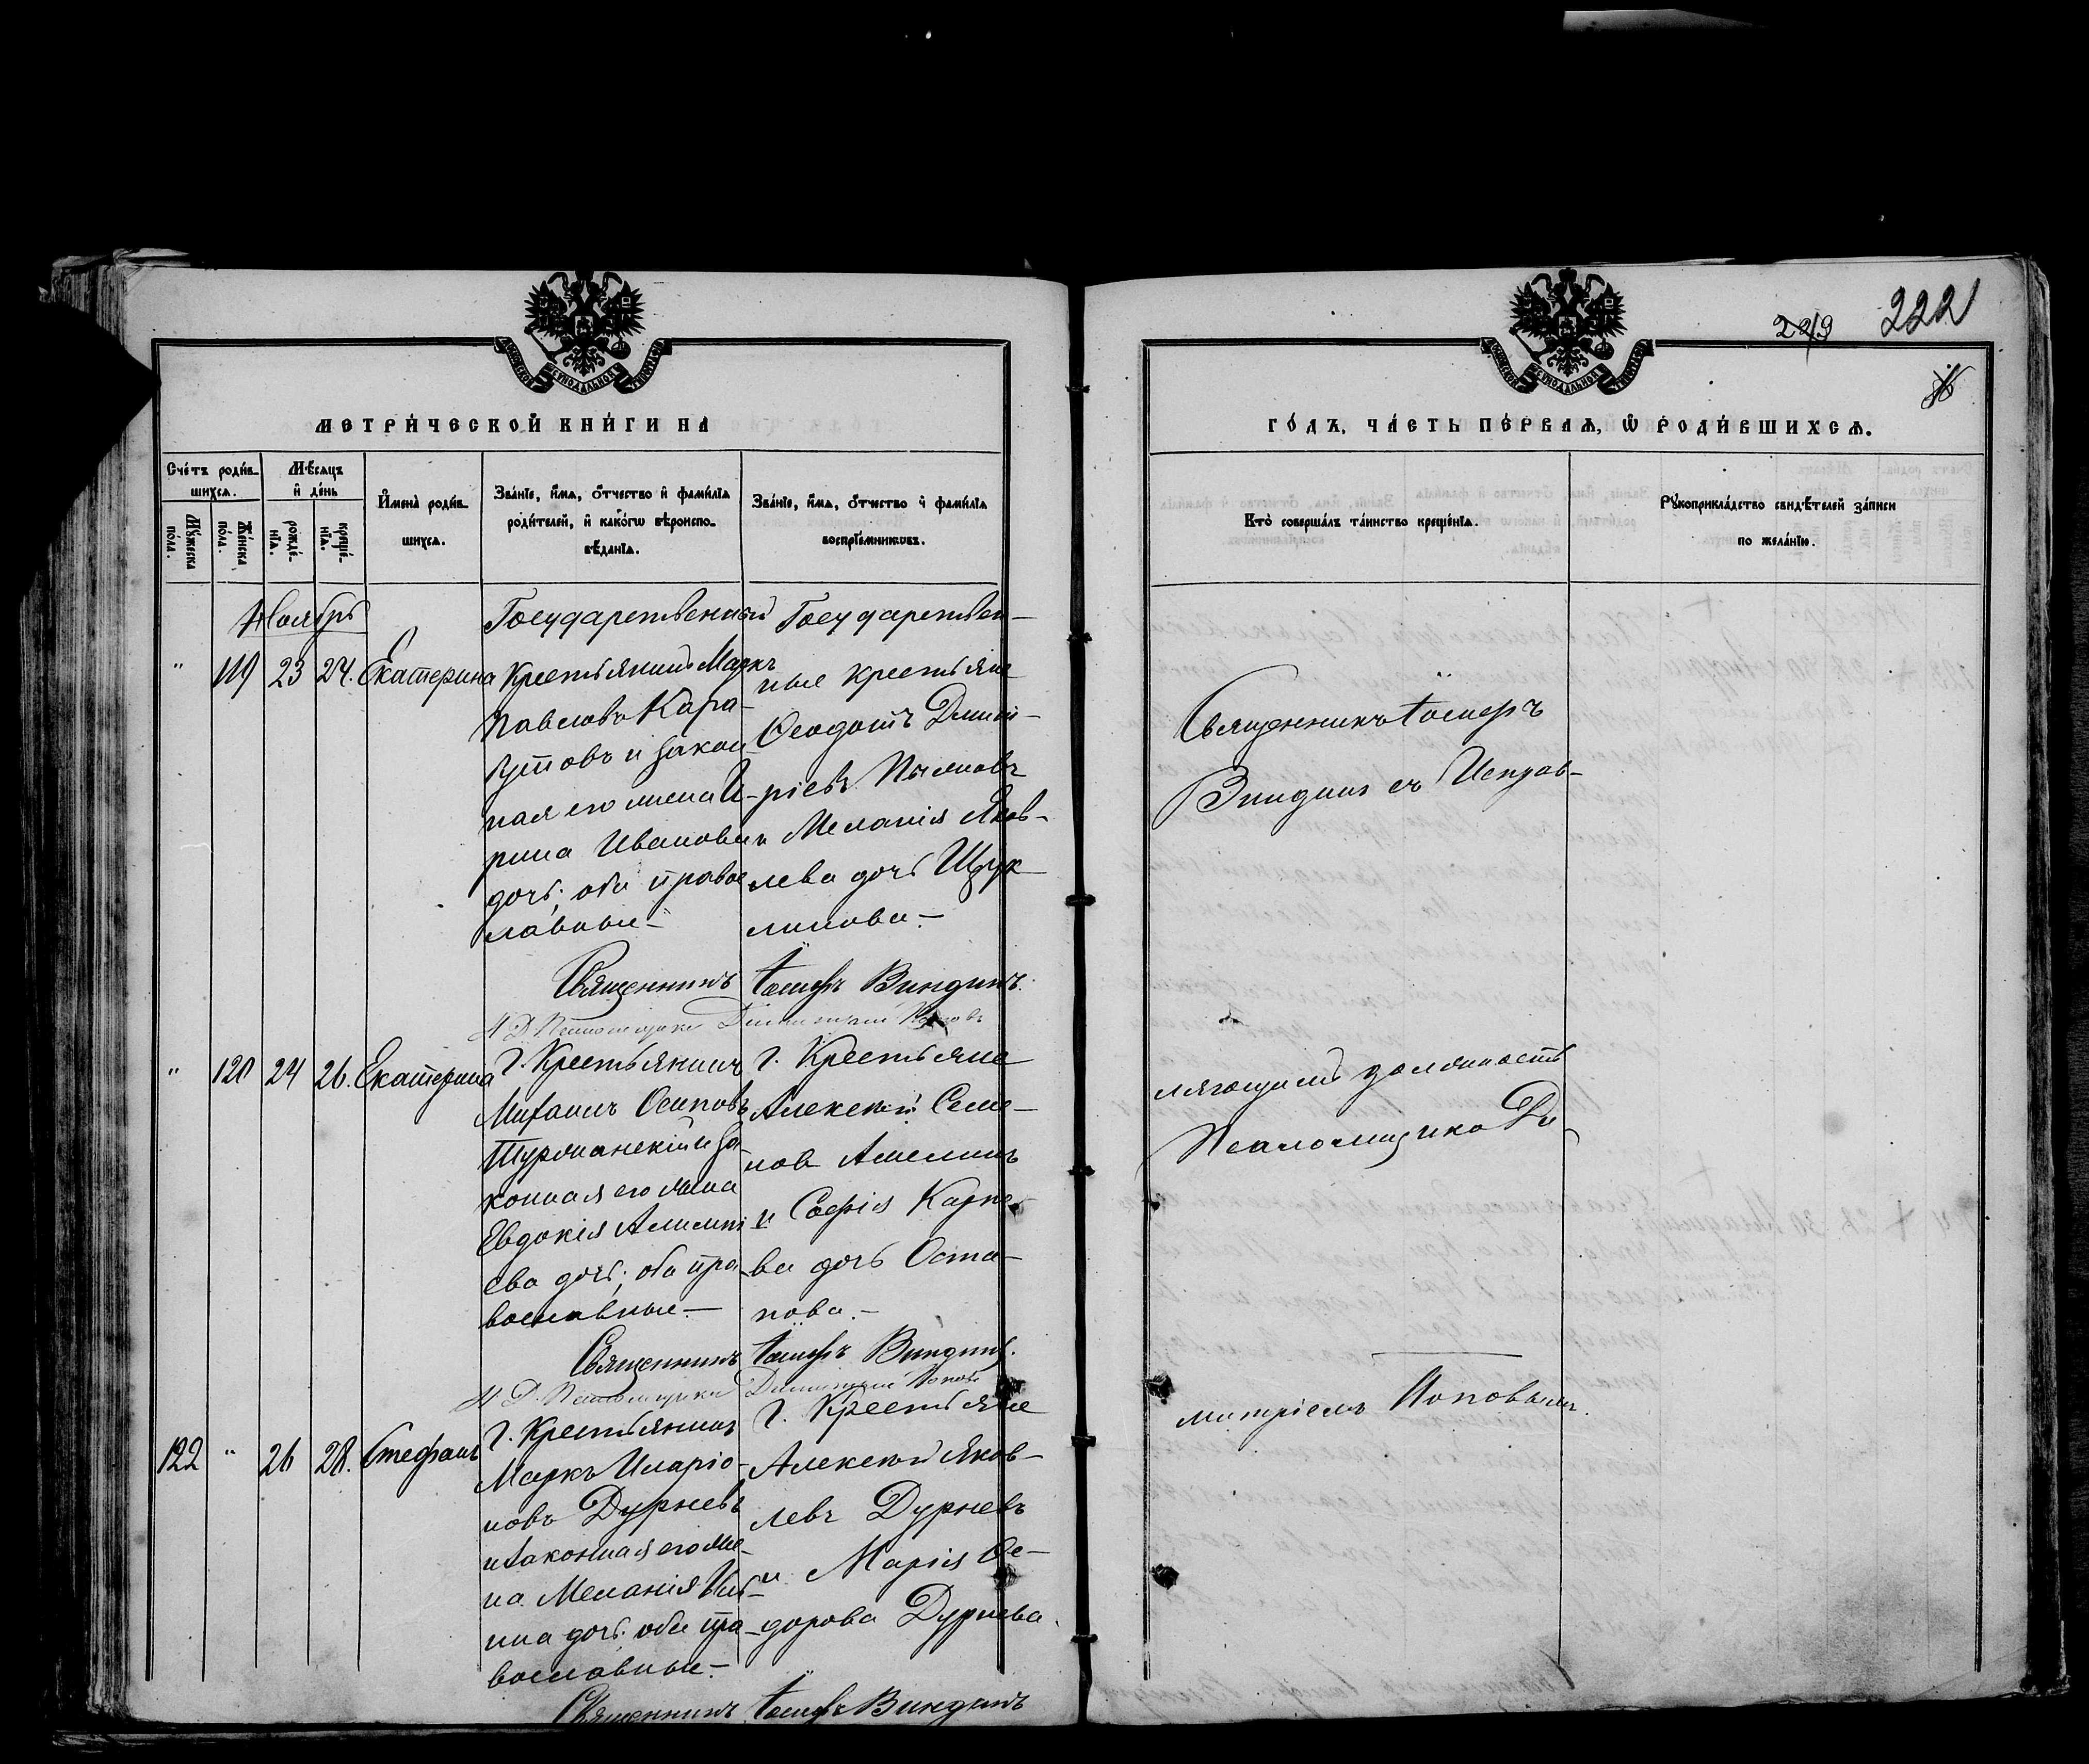 222
229
МЕТРИЧЕСКОЙ КНИГИ НА
ГОДЪ, ЧАСТЬ ПЕРВАЯ, Ѡ РОДИВШИХСЯ.
Счетъ родив-
шихся.
Мѣсяцъ
и день
Мужеска
пола.
Женска
пола.
рожде-
нія.
креще-
нія.
Имена родив-
шихся.
Званіе, имя, отчество и фамилія
родителей, и какогѡ вѣроиспо-
вѣданія.
Званіе, имя, отчество и фамилія
воспріемниковъ.
Кто совершалъ таинство крещенія.
Рукоприкладство свидѣтелей записи
по желанію.
Ноябрь
" 119 23 24. Екатерина
Государственный
Крестьянинъ Маркъ
Павловъ Кара-
гутовъ и закон
ная его жена И-
рина Иванова
дочь; оба правос
лавные-
Государствен-
ные крестьяне
Ѳеодотъ Дмит-
ріевъ
и Меланія Яков-
лева дочь Щук-
линова-
Священникъ Іосифъ
Виндинъ съ Исправ-
Священникъ Іосифъ Виндинъ.
И. Д. Псаломщика Димитрій Поповъ
" 120 24 26. Екатерина
Г. Крестьянинъ
Михаилъ Осиповъ
и за
конная его жена
Евдокія
ева дочь; оба пра
вославные-
Г. Крестьяне
Алексѣй Семе-
нов Амелинъ
и Софія Карпо-
ва дочь Оста-
пова.-
ляющимъ должность
Псаломщика Ди-
Священникъ Іосифъ Виндинъ.
И. Д. Псаломщика Димитрій Поповъ
122 " 26 28. Стефанъ
Г. Крестьянинъ
Маркъ Иларіо-
новъ Дурневъ
и законная его же-
на Меланія Иль-
ина дочь; оба пра-
вославные-
Г. Крестьяне
Алексѣй Яков-
левъ Дурневъ
и Марія Ѳе-
дорова Дурнева.
митріемъ Поповымъ.
Священникъ Іосифъ Виндинъ